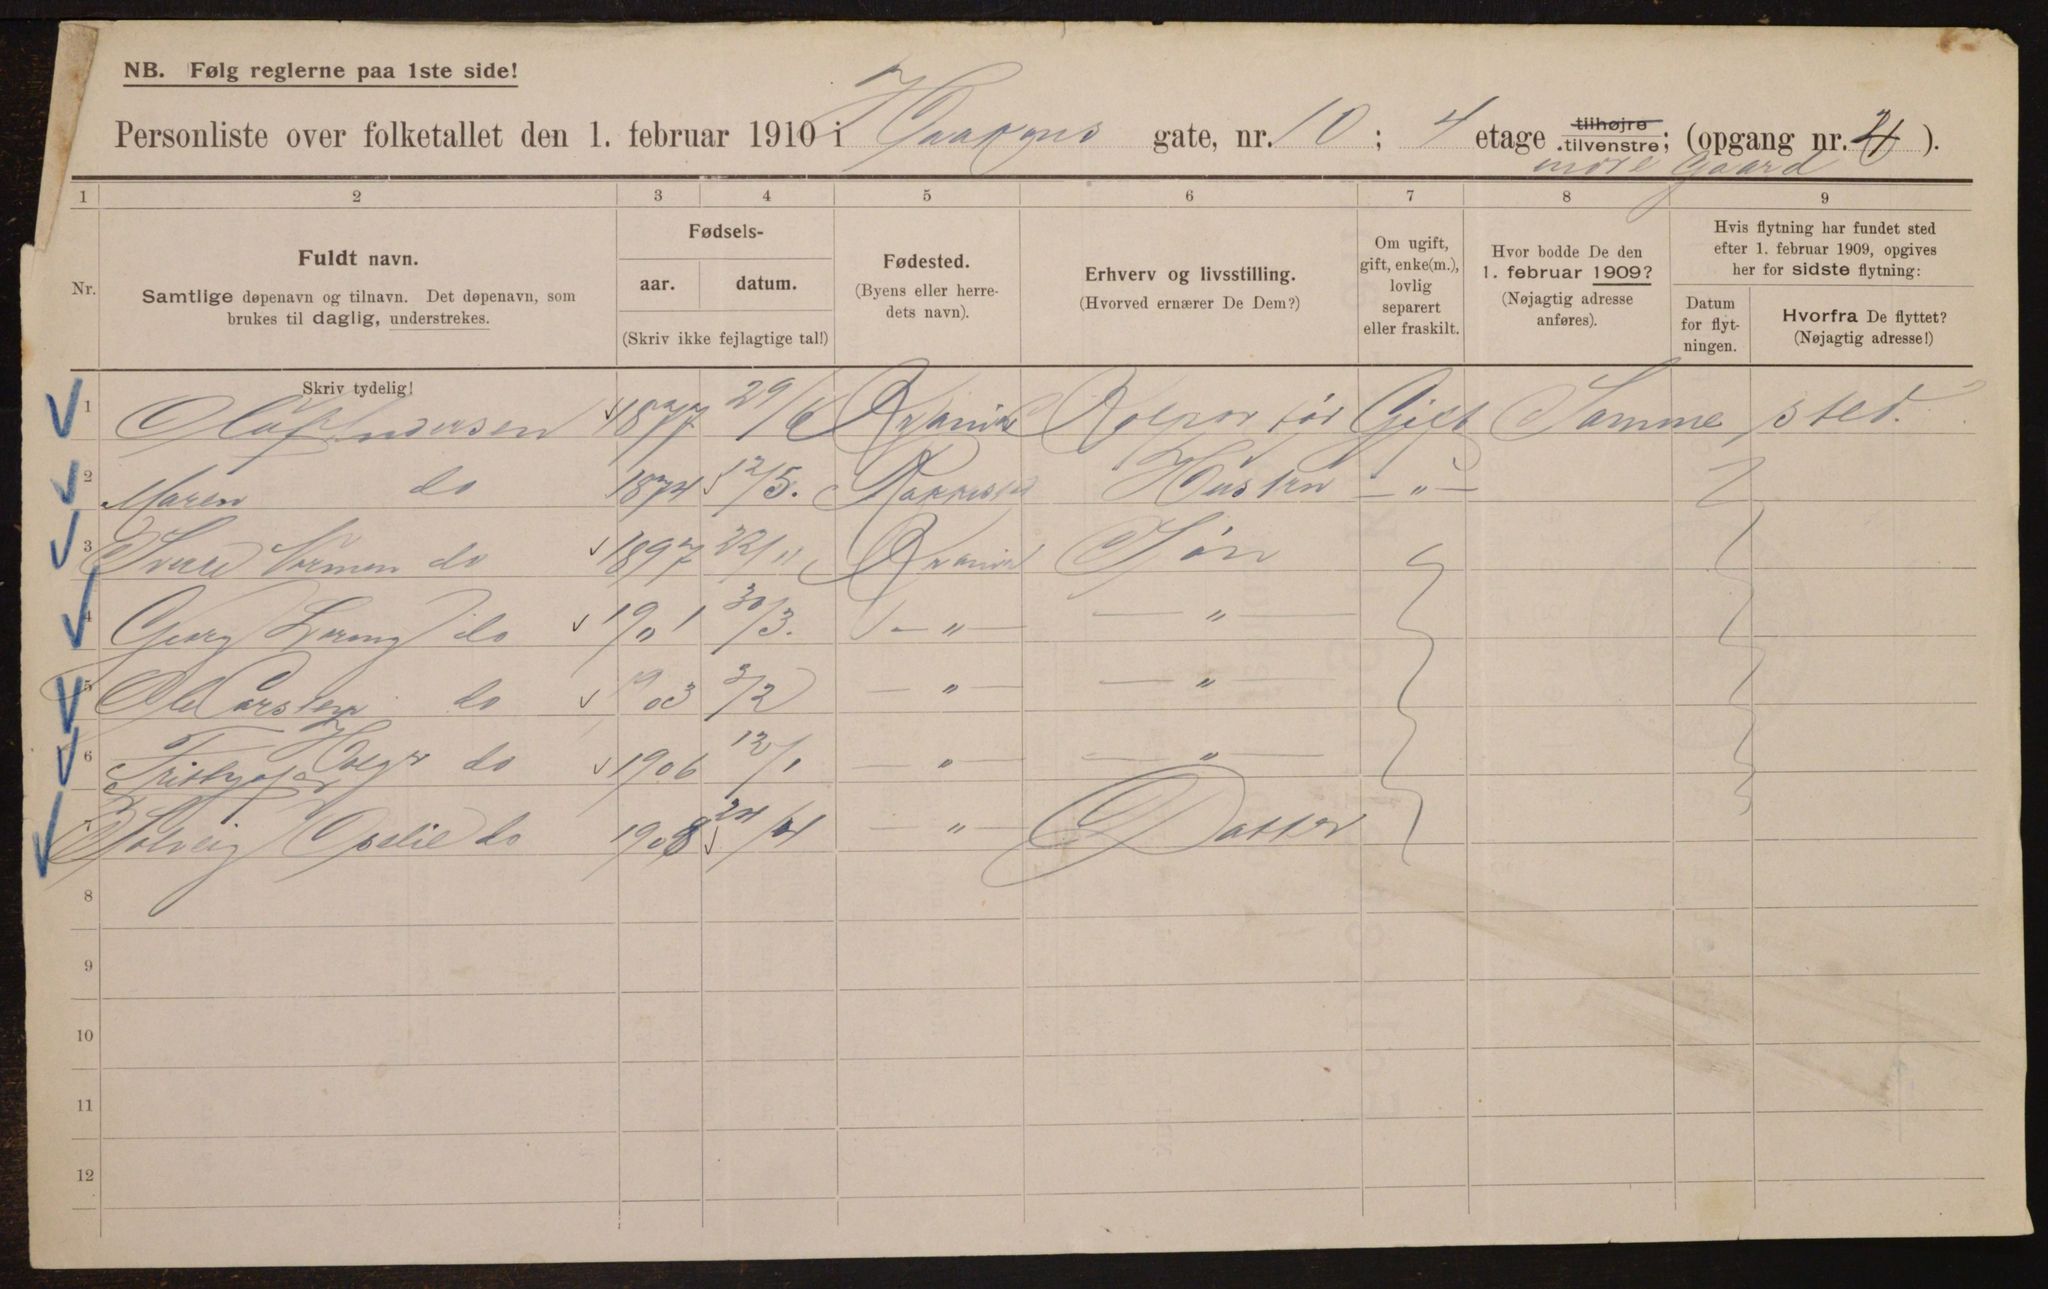 NB. Følg reglerne paa 1ste side!
Personliste over folketallet den 1. februar 1910 i Haakons gate, nr. 10; 4 etage tilhøjre tilvenstre; (opgang nr. 4).
indre Gaard
1 2 3 4 5 6 7 8 9
Nr.
Fuldt navn.
Samtlige døpenavn og tilnavn. Det døpenavn, som
brukes til daglig, understrekes.
Fødsels-
aar. datum.
(Skriv ikke fejlagtige tal!)
Fødested.
(Byens eller herre-
dets navn).
Erhverv og livsstilling.
(Hvorved ernærer De Dem?)
Om ugift,
gift, enke(m.),
lovlig
separert
eller fraskilt.
Hvor bodde De den
1. februar 1909?
(Nøjagtig adresse
anføres).
Hvis flytning har fundet sted
efter 1. februar 1909, opgives
her for sidste flytning:
Datum
for flyt-
ningen.
Hvorfra De flyttet?
(Nøjagtig adresse!)
Skriv tydelig!
1 Olaf Andersen 1877 29/6 Gift Samme sted.
2 Maren do 1874 12/5. Hustru — " —
3 do 1897 22/11 Søn
4 Georg do 19"1 30/3. — " — — " —
5 Ole Carsten do 1903 3/2 — " — — " —
6 Frithjof Holger do 1906 12/1 — " — — " —
7 Solveig do 1908 24/4 — " — Datter
8
9
10
11
12